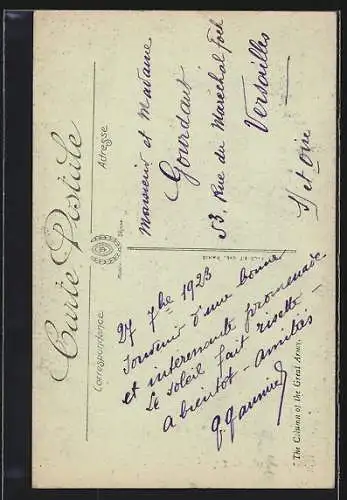 Carte Postale
Correspondance
Adresse
27 7bre 1923
Souvenir d'une bonne
et interessante promenade
Le soleil fait risette -
A bientot - Amitiés
Monsieur et Madame
Gourdaut
53, Rue du Maréchal Foch
Versailles
S/ et Oise
The Column of the Great Army.